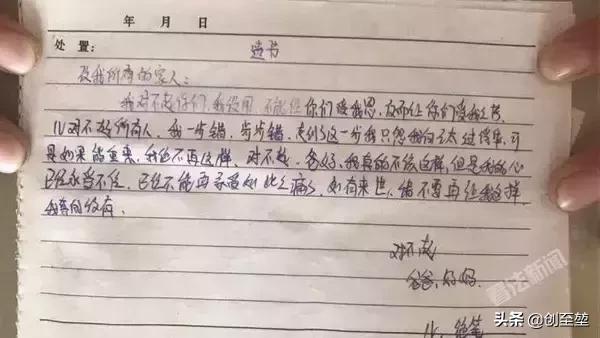 年 月 日
处置： 遗书
致我所有的家人：
我对不起你们，我没用，不能让你们受我恩，反而让你们受我之苦，
儿对不起所有人，我一步错，步步错，走到了这一步我只怨我自己太过懦弱，可
是如果能重来，我绝不再这样，对不起，爸妈，我真的不该这样，但是我的心
已经承当不住，已经不能再承受如此之痛了，如有来生，绝不要再让我这样，
我
对不起
爸爸，妈妈
儿，绝笔
看法新闻
头条 @创至堃